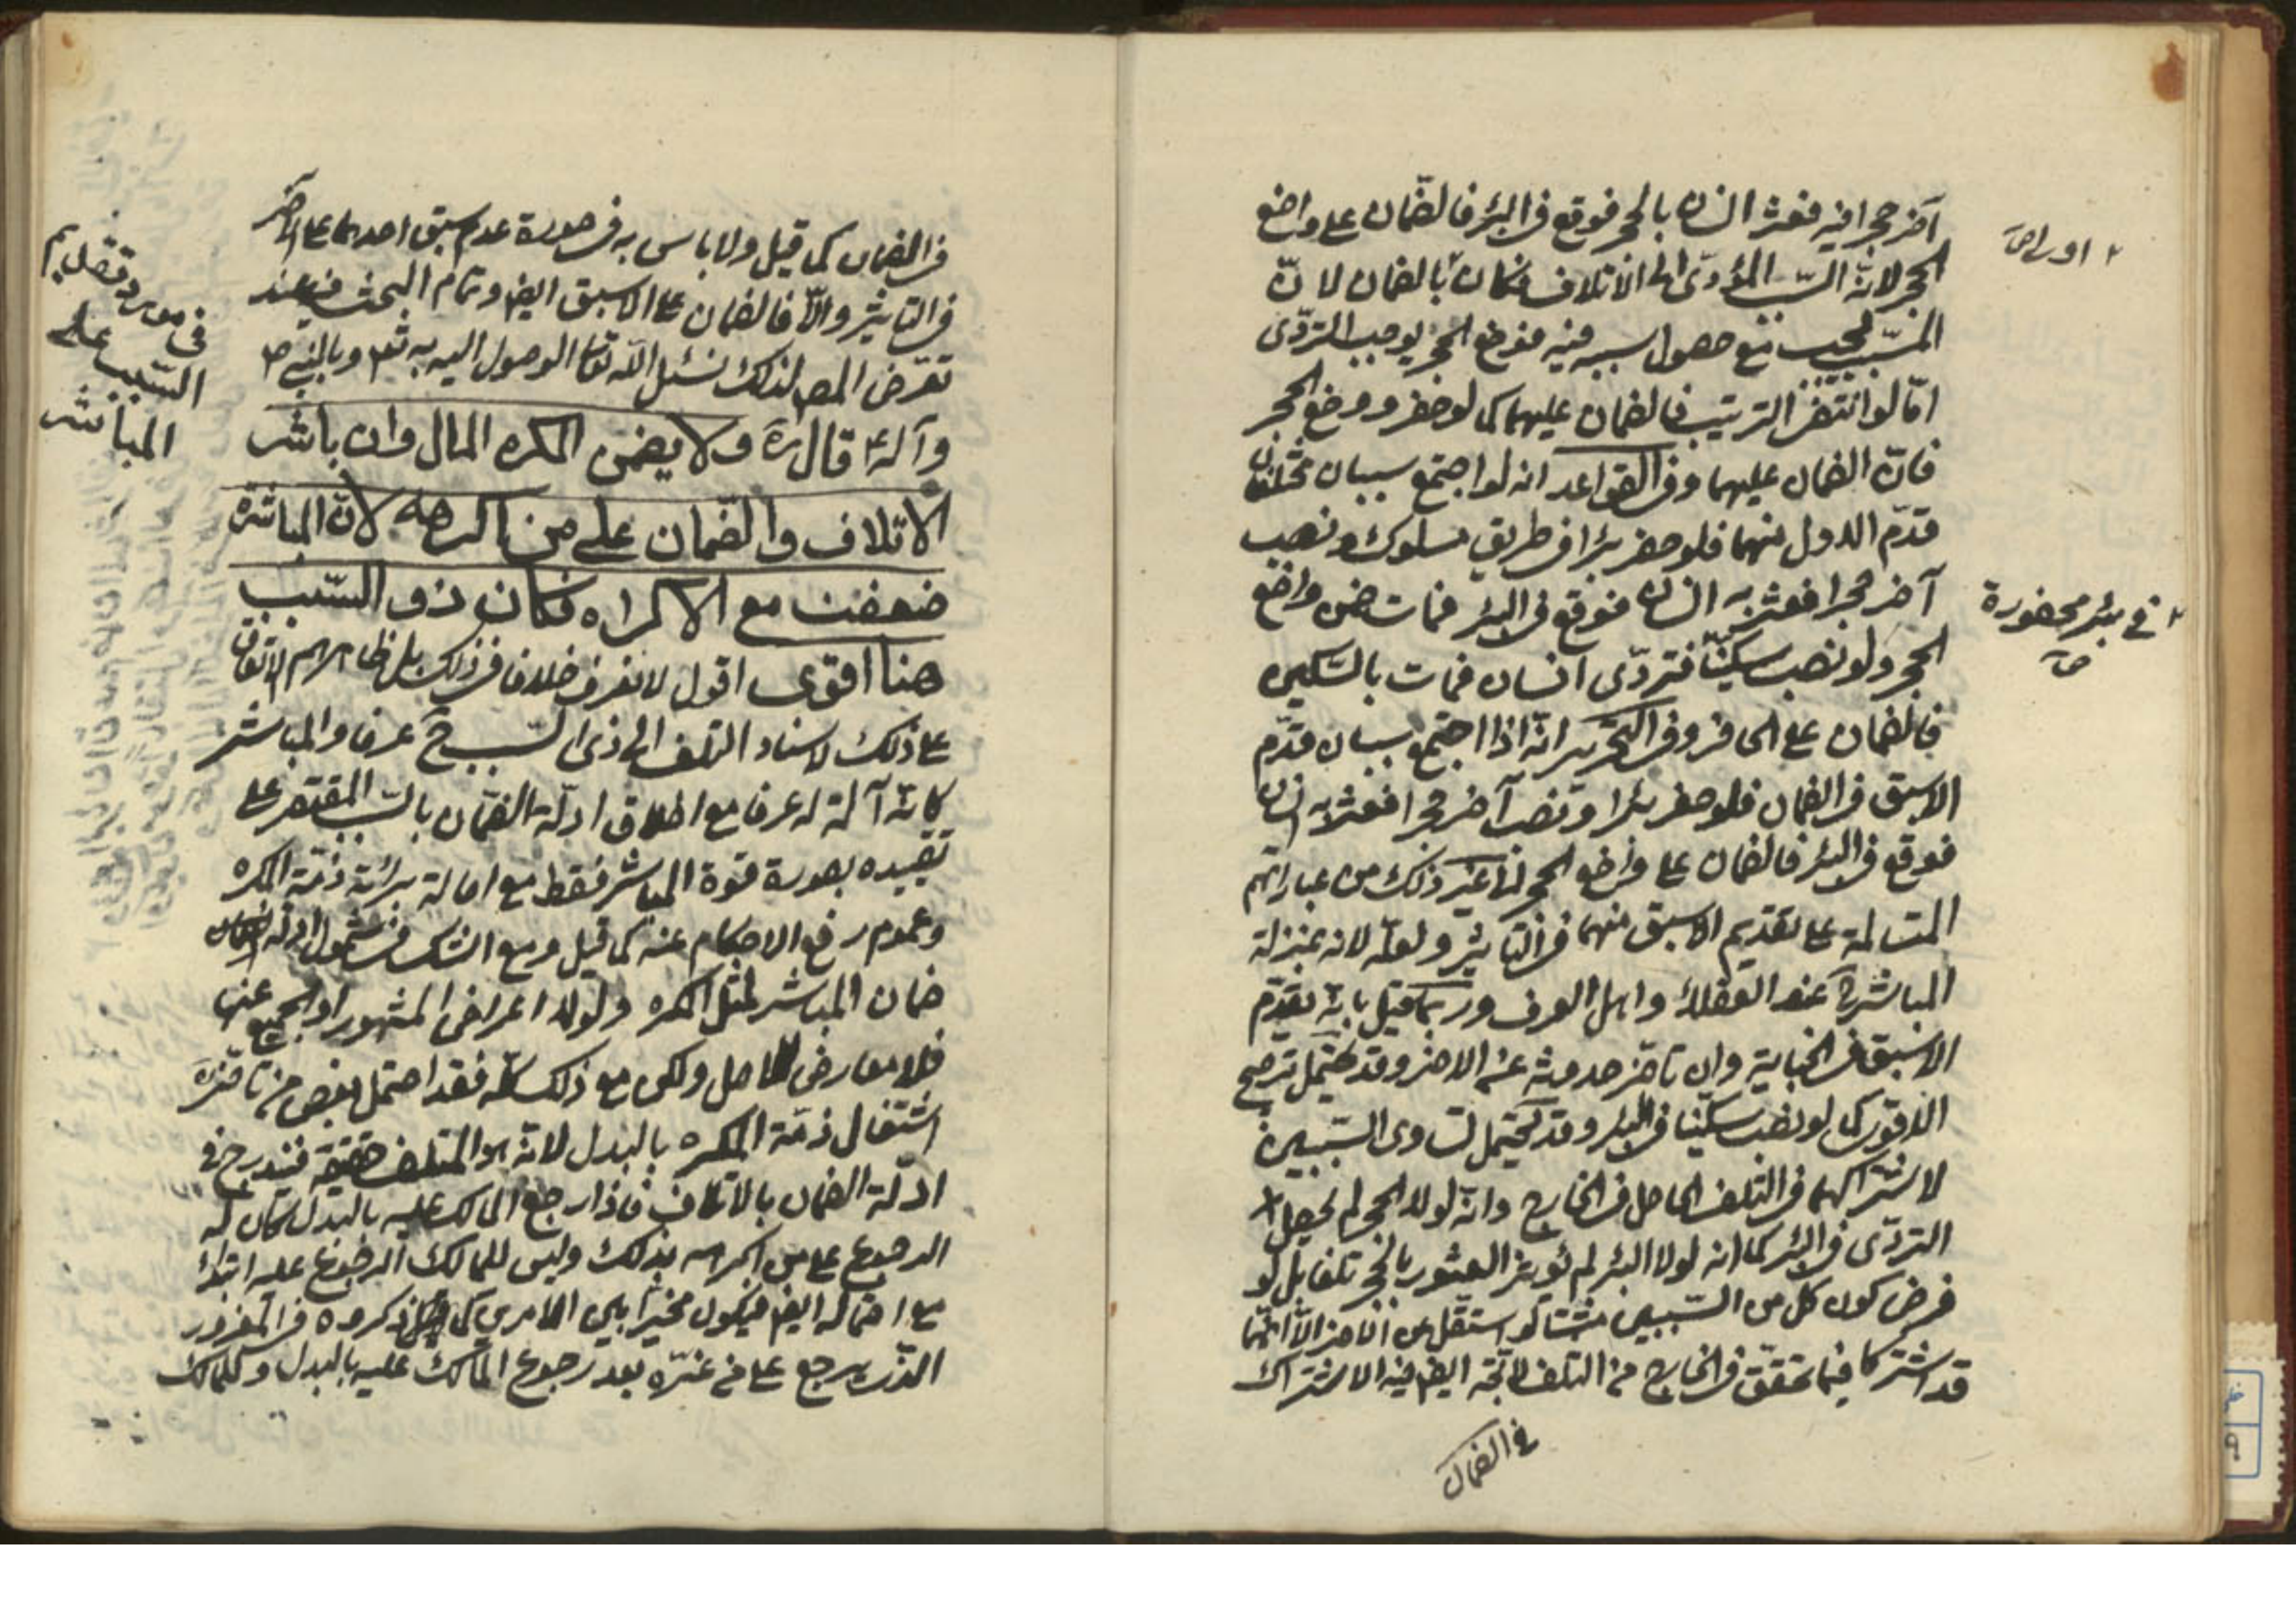 آخر حجرا فيه فعثر انسان بالحجر فوقع في البئر فالضمان على واضع
الحجر لانّه السّبب المؤدّى الى الاتلاف فكان بالضمان لانّ
٢ اولى صح
المسبّب يجب مع حصول سببه فيه فوضع الحجر يوجب التردّى
امّا لو انتفى الترتيب فالضمان عليهما كما لو حفر و وضع الحجر
فانّ الضمان عليهما وفى القواعد انه لو اجتمع سببان مختلفان
قدّم الاول منهما فلو حفر بئرا فى طريق مسلوك و نصب
آخر حجرا فعثر به انسان فوقع فى البئر فمات ضمن واضع
٢ فى بئر محفورة صح
الحجر ولو نصب سكينّا فتردّى انسان فمات بالسّكين
فالضمان على الحافر وفى التحرير انّه اذا اجتمع سببان قدّم
الاسبق فى الضمان فلو حفر بئرا و نصب آخر حجرا فعثر به انسان
فوقع فى البئر فالضمان على واضع الحجر الى غير ذلك من عباراتهم
المتسالمة على تقديم الاسبق منهما فى التاثير ولعلّه لانه بمنزلة
المباشرة عند العقلاء واهل العرف وربما قيل بانّه يقدّم
الاسبق فى الجناية وان تاخّر حدوثه عن الاخر وقد يحتمل ترجيح
الاقوى كما لو نصب سكّينا فى البئر وقد يحتمل تساوى السّببين
لاشتراكهما فى التلف الحاصل فى الخارج وانّه لولا الحجر لم يحصل
التردّى فى البئر كما انه لولا البئر لم يؤثر العثور بالحجر تلفا بل لو
فرض كون كل من السّببين مستقل عن الاخر الّا انّهما
قد اشتركا فيما تحقّق فى الخارج من التلف لاتّجه ايضا فيه الاشتراك
فى الضمان
فى الضمان كما قيل ولا باس به فى صورة عدم سبق احدهما على الاخر
فى التاثير والّا فالضمان على الاسبق ايضا وتمام البحث فيه عند
تعرّض المصـ لذلك نسئل اللّه تعا الوصول اليه به تعـ وبالنبى ص
وآله قال ره ولا يضمن المكره المال وان باشر
الاتلاف والضّمان على من اكرهه لانّ المباشرة
ضعفت مع الاكراه فكان ذو السّبب
هنا اقوى اقول لا نعرف خلافا فى ذلك بل ظاهرهم الاتفاق
فى مورد تقديم
السّبب على
المباشر
على ذلك لاسناد التلف الى ذى السّبب ح عرفا والمباشر
كانّه آلة له عرفا مع اطلاق ادلّة الضمّان بالسّبب المقتصر على
تقييده بصورة قوة المباشر فقط مع اصالة برائة ذمّة المكره
وعموم رفع الاحكام عنه كما قيل ومع الشك فى شمول ادلّة الضمان
ضمان المباشر لمثل المكره ولو لا اعراض المشهور او الجميع عنها
فلا معارض للاصل ولكن مع ذلك كلّه فقد احتمل بعض من تاخّر
اشتغال ذمّة المكره بالبدل لانّه هو المتلف حقيقة فيندرج فى
ادلّة الضمان بالاتلاف فاذا رجع المالك عليه بالبدل كان له
الرجوع على من اكرهه بذلك وليس للمالك الرجوع عليه ابتداء
مع احتماله ايضا فيكون مخيّرا بين الامرين كما ذكروه فى المغرور
الّذى يرجع على من غرّه بعد رجوع المالك عليه بالبدل وللمالك